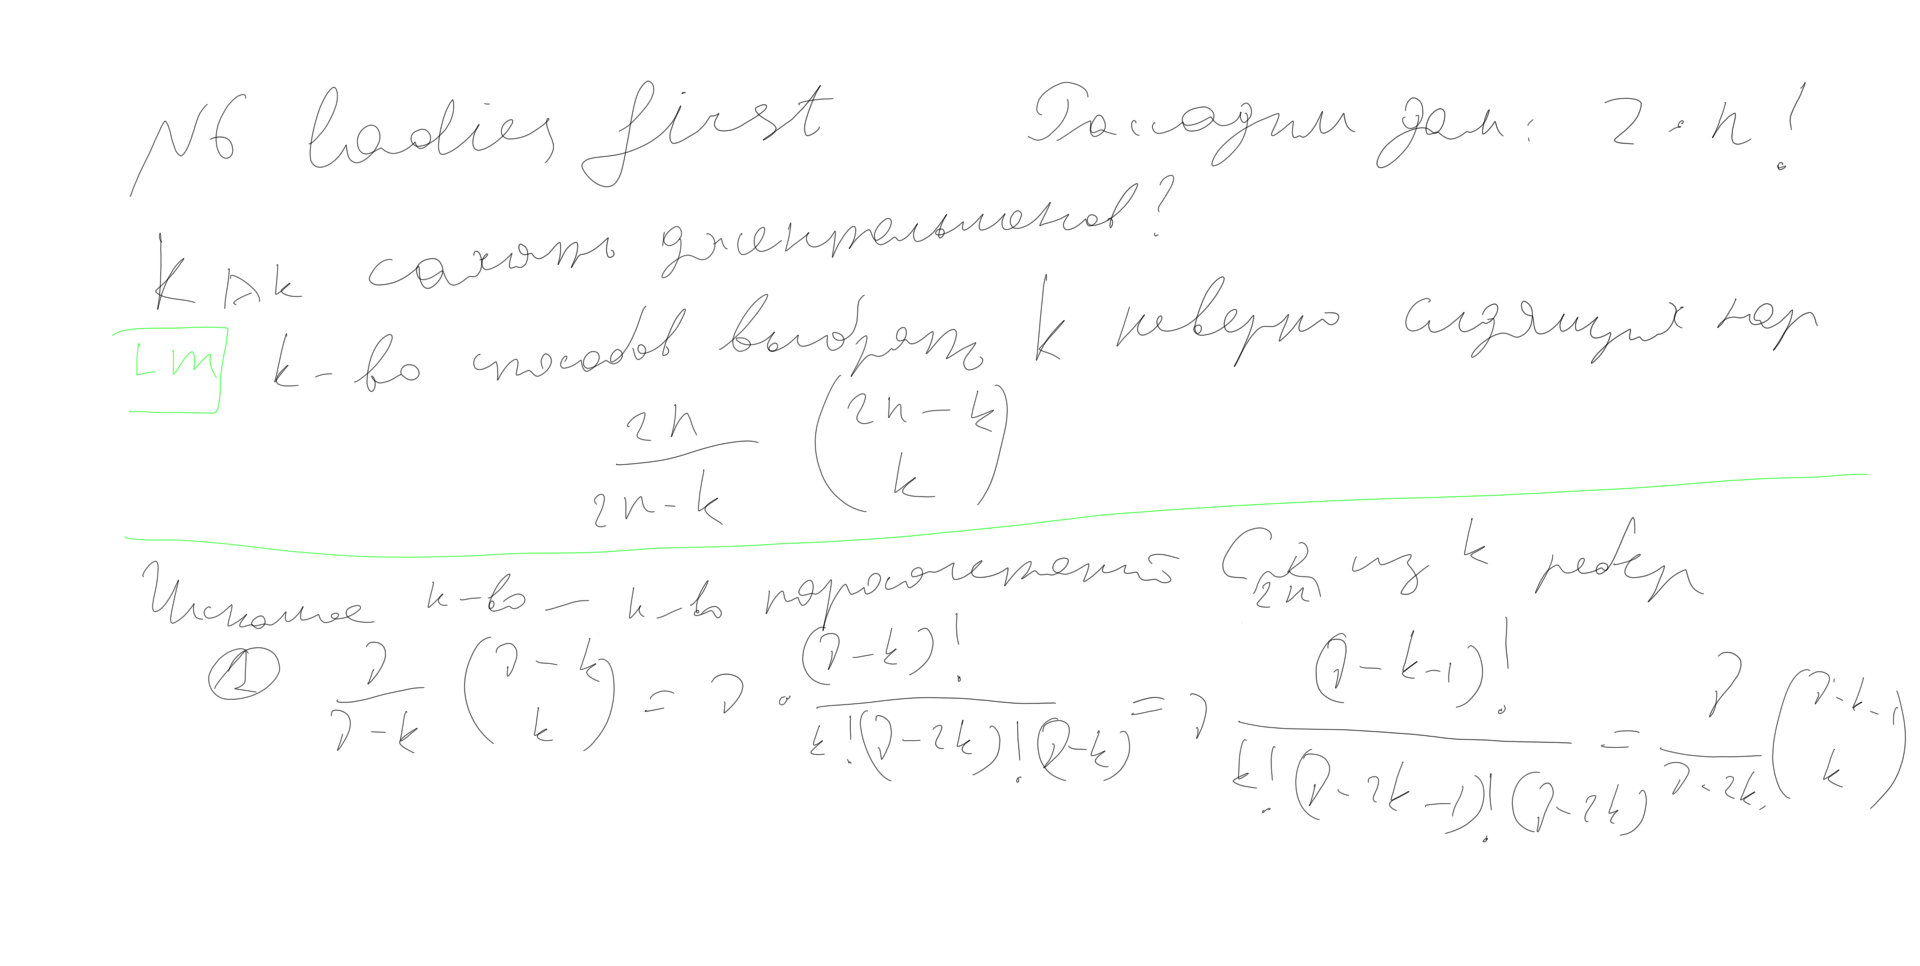 N6 Ladies first Рассадим дам: 2 · n!
Как сажать джентельменов?
Lm к-во способов выбрать k неверно сидящих пар
\frac{2n}{2n-k} \binom{2n-k}{k}
Искомое к-во – к-во паросочетаний C_{2n} из k ребер
① \frac{p}{p-k} \binom{p-k}{k} = p \cdot \frac{(p-k)!}{k!(p-2k)!(p-k)} = p \frac{(p-k-1)!}{k!(p-2k-1)!(p-2k)} = \frac{p}{p-2k} \binom{p-k-1}{k}